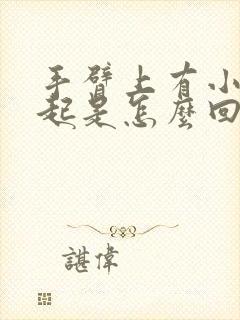 手臂上有小
起是怎麼回
諶偉